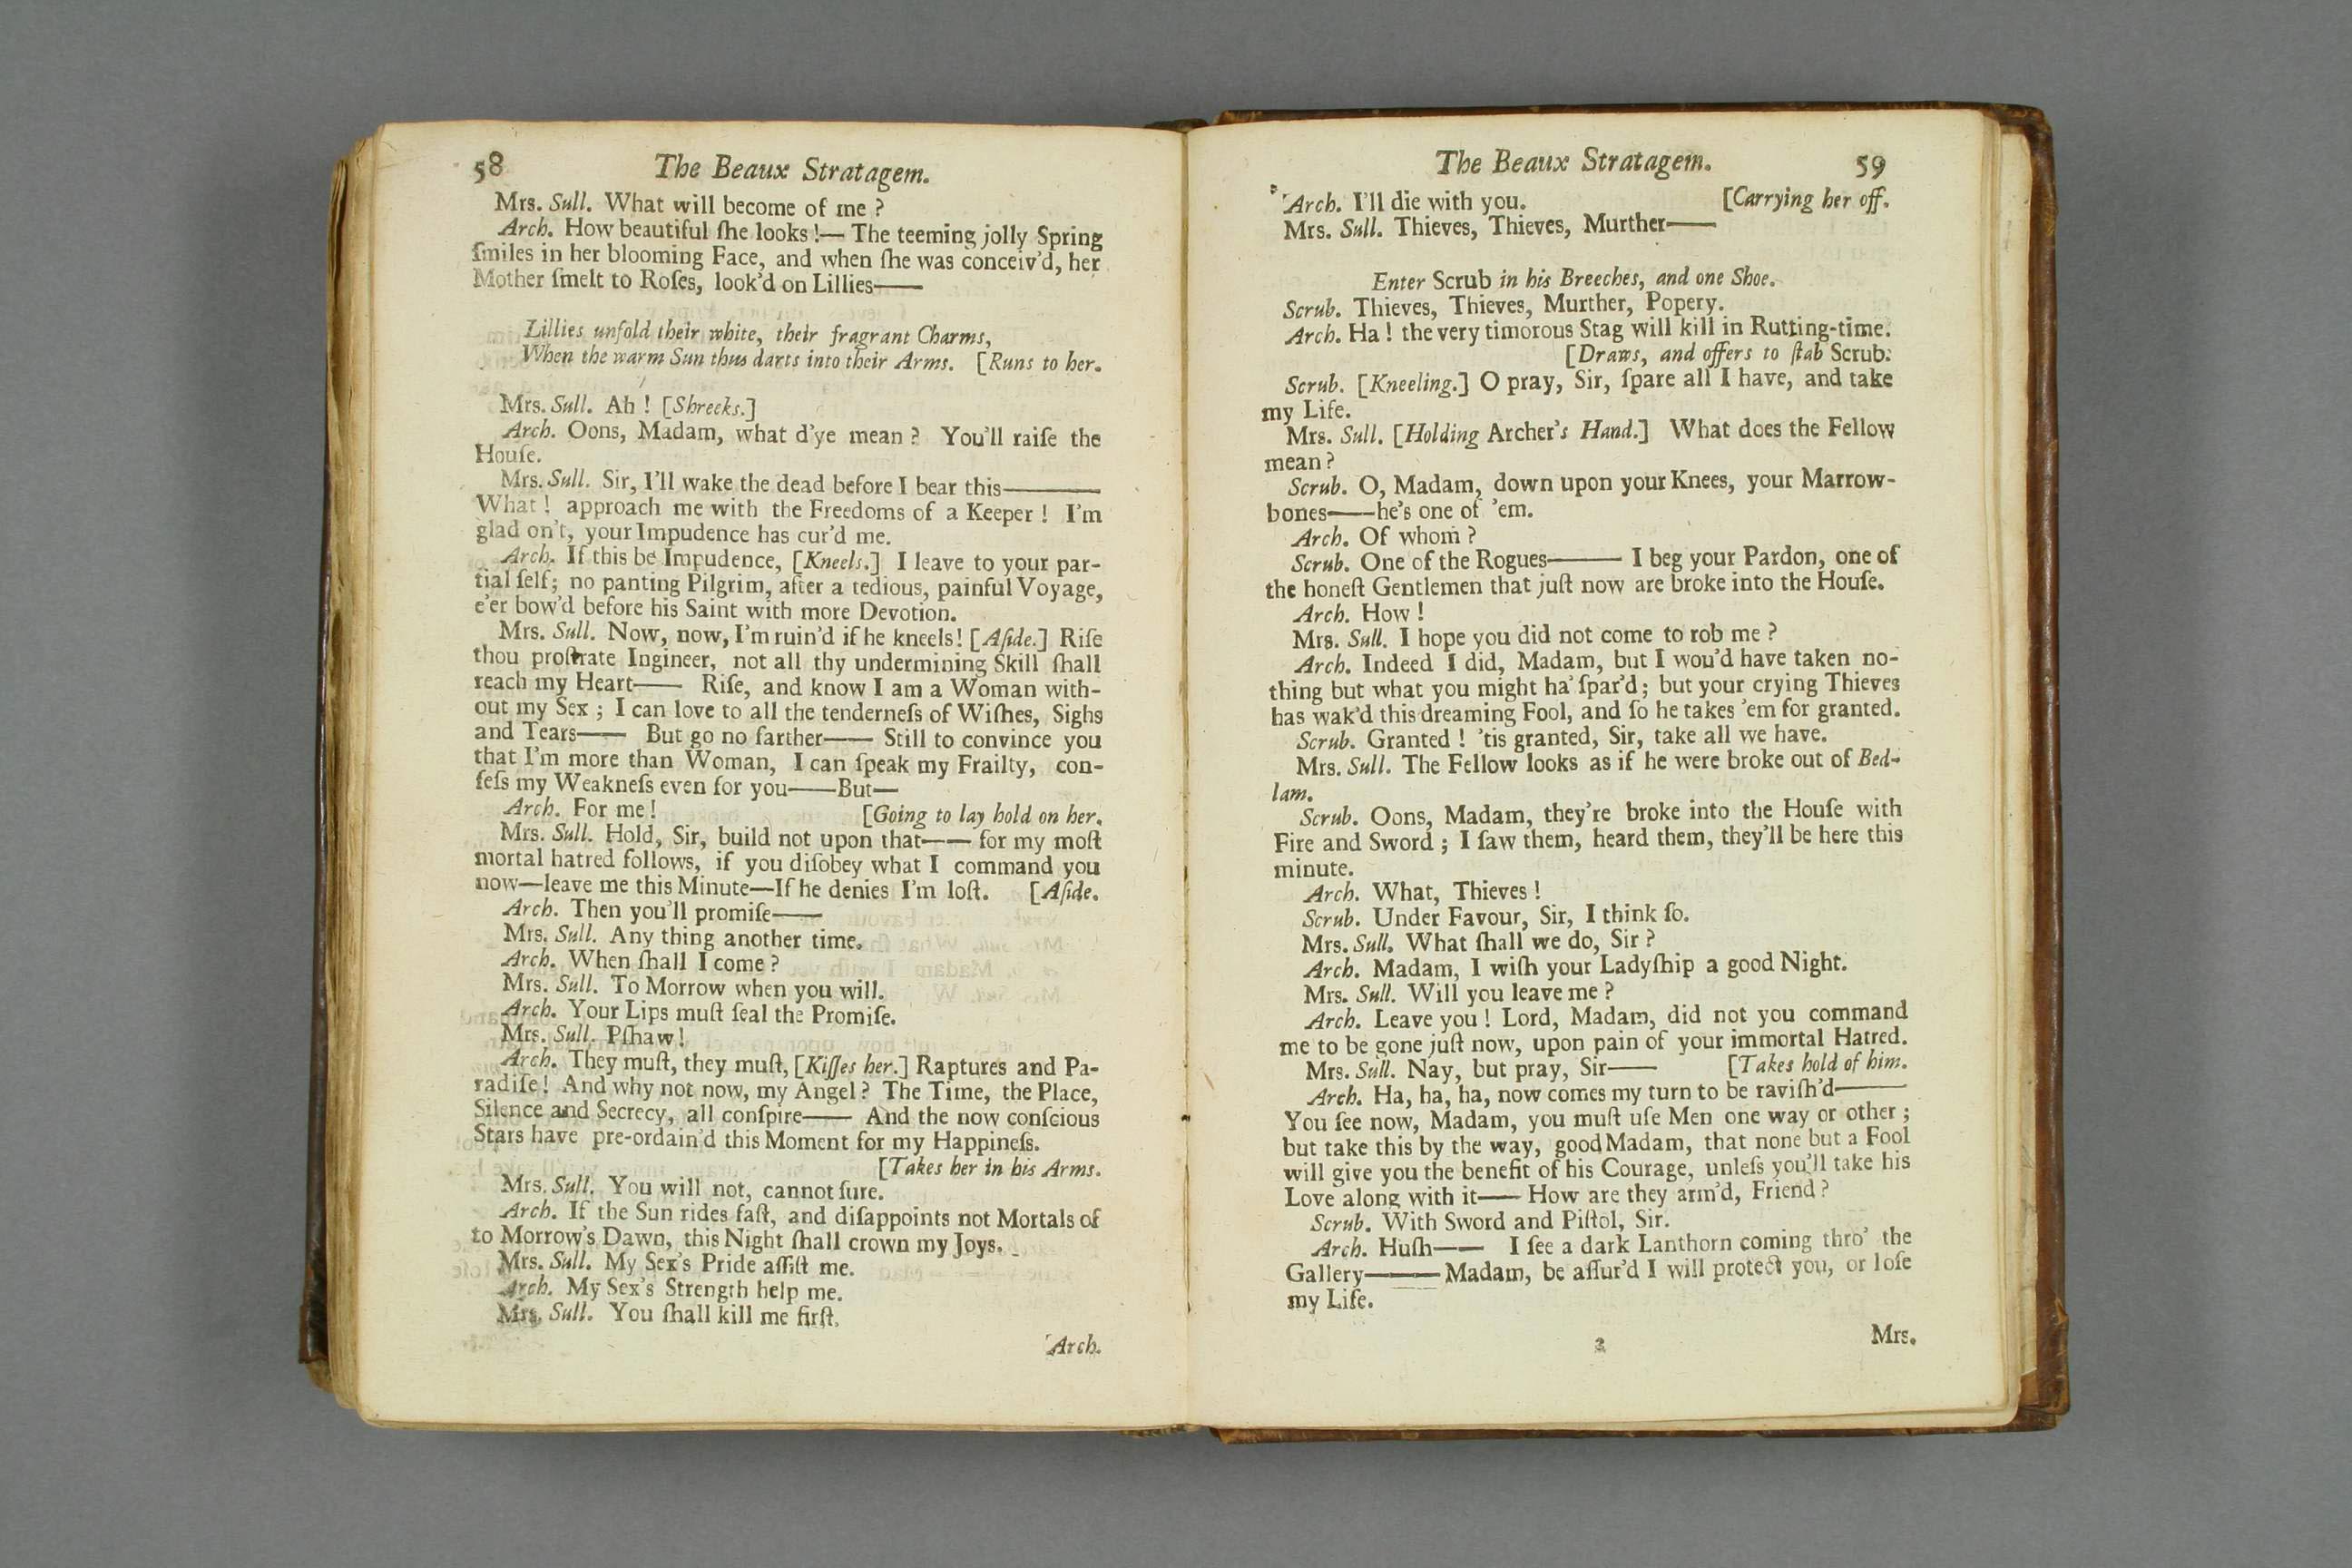 58 The Beaux Stratagem.
Mrs. Sull. What will become of me ?
Arch. How beautiful ſhe looks !— The teeming jolly Spring
ſmiles in her blooming Face, and when ſhe was conceiv'd, her
Mother ſmelt to Roſes, look'd on Lillies——
Lillies unfold their white, their fragrant Charms,
When the warm Sun thus darts into their Arms. [Runs to her.
Mrs. Sull. Ah ! [Shreeks.]
Arch. Oons, Madam, what d'ye mean ? You'll raiſe the
Houſe.
Mrs. Sull. Sir, I'll wake the dead before I bear this———
What ! approach me with the Freedoms of a Keeper ! I'm
glad on't, your Impudence has cur'd me.
Arch. If this be Impudence, [Kneels.] I leave to your par-
tial ſelf; no panting Pilgrim, after a tedious, painful Voyage,
e'er bow'd before his Saint with more Devotion.
Mrs. Sull. Now, now, I'm ruin'd if he kneels! [Aſide.] Riſe
thou proſtrate Ingineer, not all thy undermining Skill ſhall
reach my Heart—— Riſe, and know I am a Woman with-
out my Sex ; I can love to all the tenderneſs of Wiſhes, Sighs
and Tears—— But go no farther—— Still to convince you
that I'm more than Woman, I can ſpeak my Frailty, con-
feſs my Weakneſs even for you——But—
Arch. For me ! [Going to lay hold on her.
Mrs. Sull. Hold, Sir, build not upon that—— for my moſt
mortal hatred follows, if you diſobey what I command you
now—leave me this Minute—If he denies I'm loſt. [Aſide.
Arch. Then you'll promiſe——
Mrs. Sull. Any thing another time.
Arch. When ſhall I come ?
Mrs. Sull. To Morrow when you will.
Arch. Your Lips muſt ſeal the Promiſe.
Mrs. Sull. Pſhaw !
Arch. They muſt, they muſt, [Kiſſes her.] Raptures and Pa-
radiſe! And why not now, my Angel ? The Time, the Place,
Silence and Secrecy, all conſpire—— And the now conſcious
Stars have pre-ordain'd this Moment for my Happineſs.
[Takes her in his Arms.
Mrs. Sull. You will not, cannot ſure.
Arch. If the Sun rides faſt, and diſappoints not Mortals of
to Morrow's Dawn, this Night ſhall crown my Joys.
Mrs. Sull. My Sex's Pride aſſiſt me.
Arch. My Sex's Strength help me.
Mrs. Sull. You ſhall kill me firſt.
Arch.
The Beaux Stratagem. 59
Arch. I'll die with you. [Carrying her off.
Mrs. Sull. Thieves, Thieves, Murther——
Enter Scrub in his Breeches, and one Shoe.
Scrub. Thieves, Thieves, Murther, Popery.
Arch. Ha ! the very timorous Stag will kill in Rutting-time.
[Draws, and offers to ſtab Scrub.
Scrub. [Kneeling.] O pray, Sir, ſpare all I have, and take
my Life.
Mrs. Sull. [Holding Archer's Hand.] What does the Fellow
mean ?
Scrub. O, Madam, down upon your Knees, your Marrow-
bones——he's one of 'em.
Arch. Of whom ?
Scrub. One of the Rogues——— I beg your Pardon, one of
the honeſt Gentlemen that juſt now are broke into the Houſe.
Arch. How !
Mrs. Sull. I hope you did not come to rob me ?
Arch. Indeed I did, Madam, but I wou'd have taken no-
thing but what you might ha' ſpar'd ; but your crying Thieves
has wak'd this dreaming Fool, and ſo he takes 'em for granted.
Scrub. Granted ! 'tis granted, Sir, take all we have.
Mrs. Sull. The Fellow looks as if he were broke out of Bed-
lam.
Scrub. Oons, Madam, they're broke into the Houſe with
Fire and Sword ; I ſaw them, heard them, they'll be here this
minute.
Arch. What, Thieves !
Scrub. Under Favour, Sir, I think ſo.
Mrs. Sull. What ſhall we do, Sir ?
Arch. Madam, I wiſh your Ladyſhip a good Night.
Mrs. Sull. Will you leave me ?
Arch. Leave you ! Lord, Madam, did not you command
me to be gone juſt now, upon pain of your immortal Hatred.
Mrs. Sull. Nay, but pray, Sir—— [Takes hold of him.
Arch. Ha, ha, ha, now comes my turn to be raviſh'd———
You ſee now, Madam, you muſt uſe Men one way or other ;
but take this by the way, good Madam, that none but a Fool
will give you the benefit of his Courage, unleſs you'll take his
Love along with it—— How are they arm'd, Friend ?
Scrub. With Sword and Piſtol, Sir.
Arch. Huſh—— I ſee a dark Lanthorn coming thro' the
Gallery——— Madam, be aſſur'd I will protect you, or loſe
my Life.
Mrs.